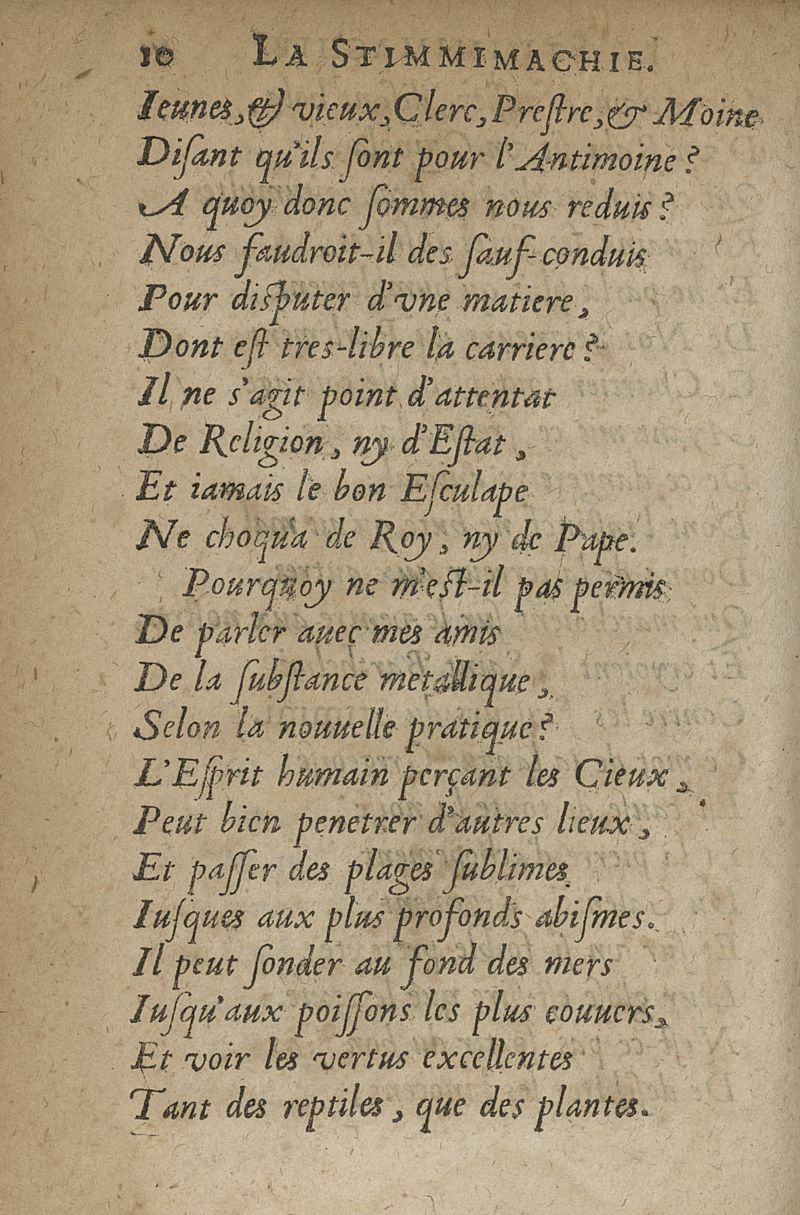 10 LA STIMMIMACHIE.
Ieunes, & vieux, Clerc, Preſtre, & Moine
Diſant qu'ils ſont pour l'Antimoine ?
A quoy donc ſommes nous reduis ?
Nous faudroit-il des ſauf-conduis
Pour diſputer d'vne matiere,
Dont eſt tres-libre la carriere ?
Il ne s'agit point d'attentat
De Religion, ny d'Eſtat,
Et iamais le bon Eſculape
Ne choqua de Roy, ny de Pape.
Pourquoy ne m'eſt-il pas permis
De parler auec mes amis
De la ſubſtance metallique,
Selon la nouuelle pratique ?
L'Eſprit humain perçant les Cieux,
Peut bien penetrer d'autres lieux,
Et paſſer des plages ſublimes
Iuſques aux plus profonds abiſmes.
Il peut ſonder au fond des mers
Iuſqu'aux poiſſons les plus couuers,
Et voir les vertus excellentes
Tant des reptiles, que des plantes.